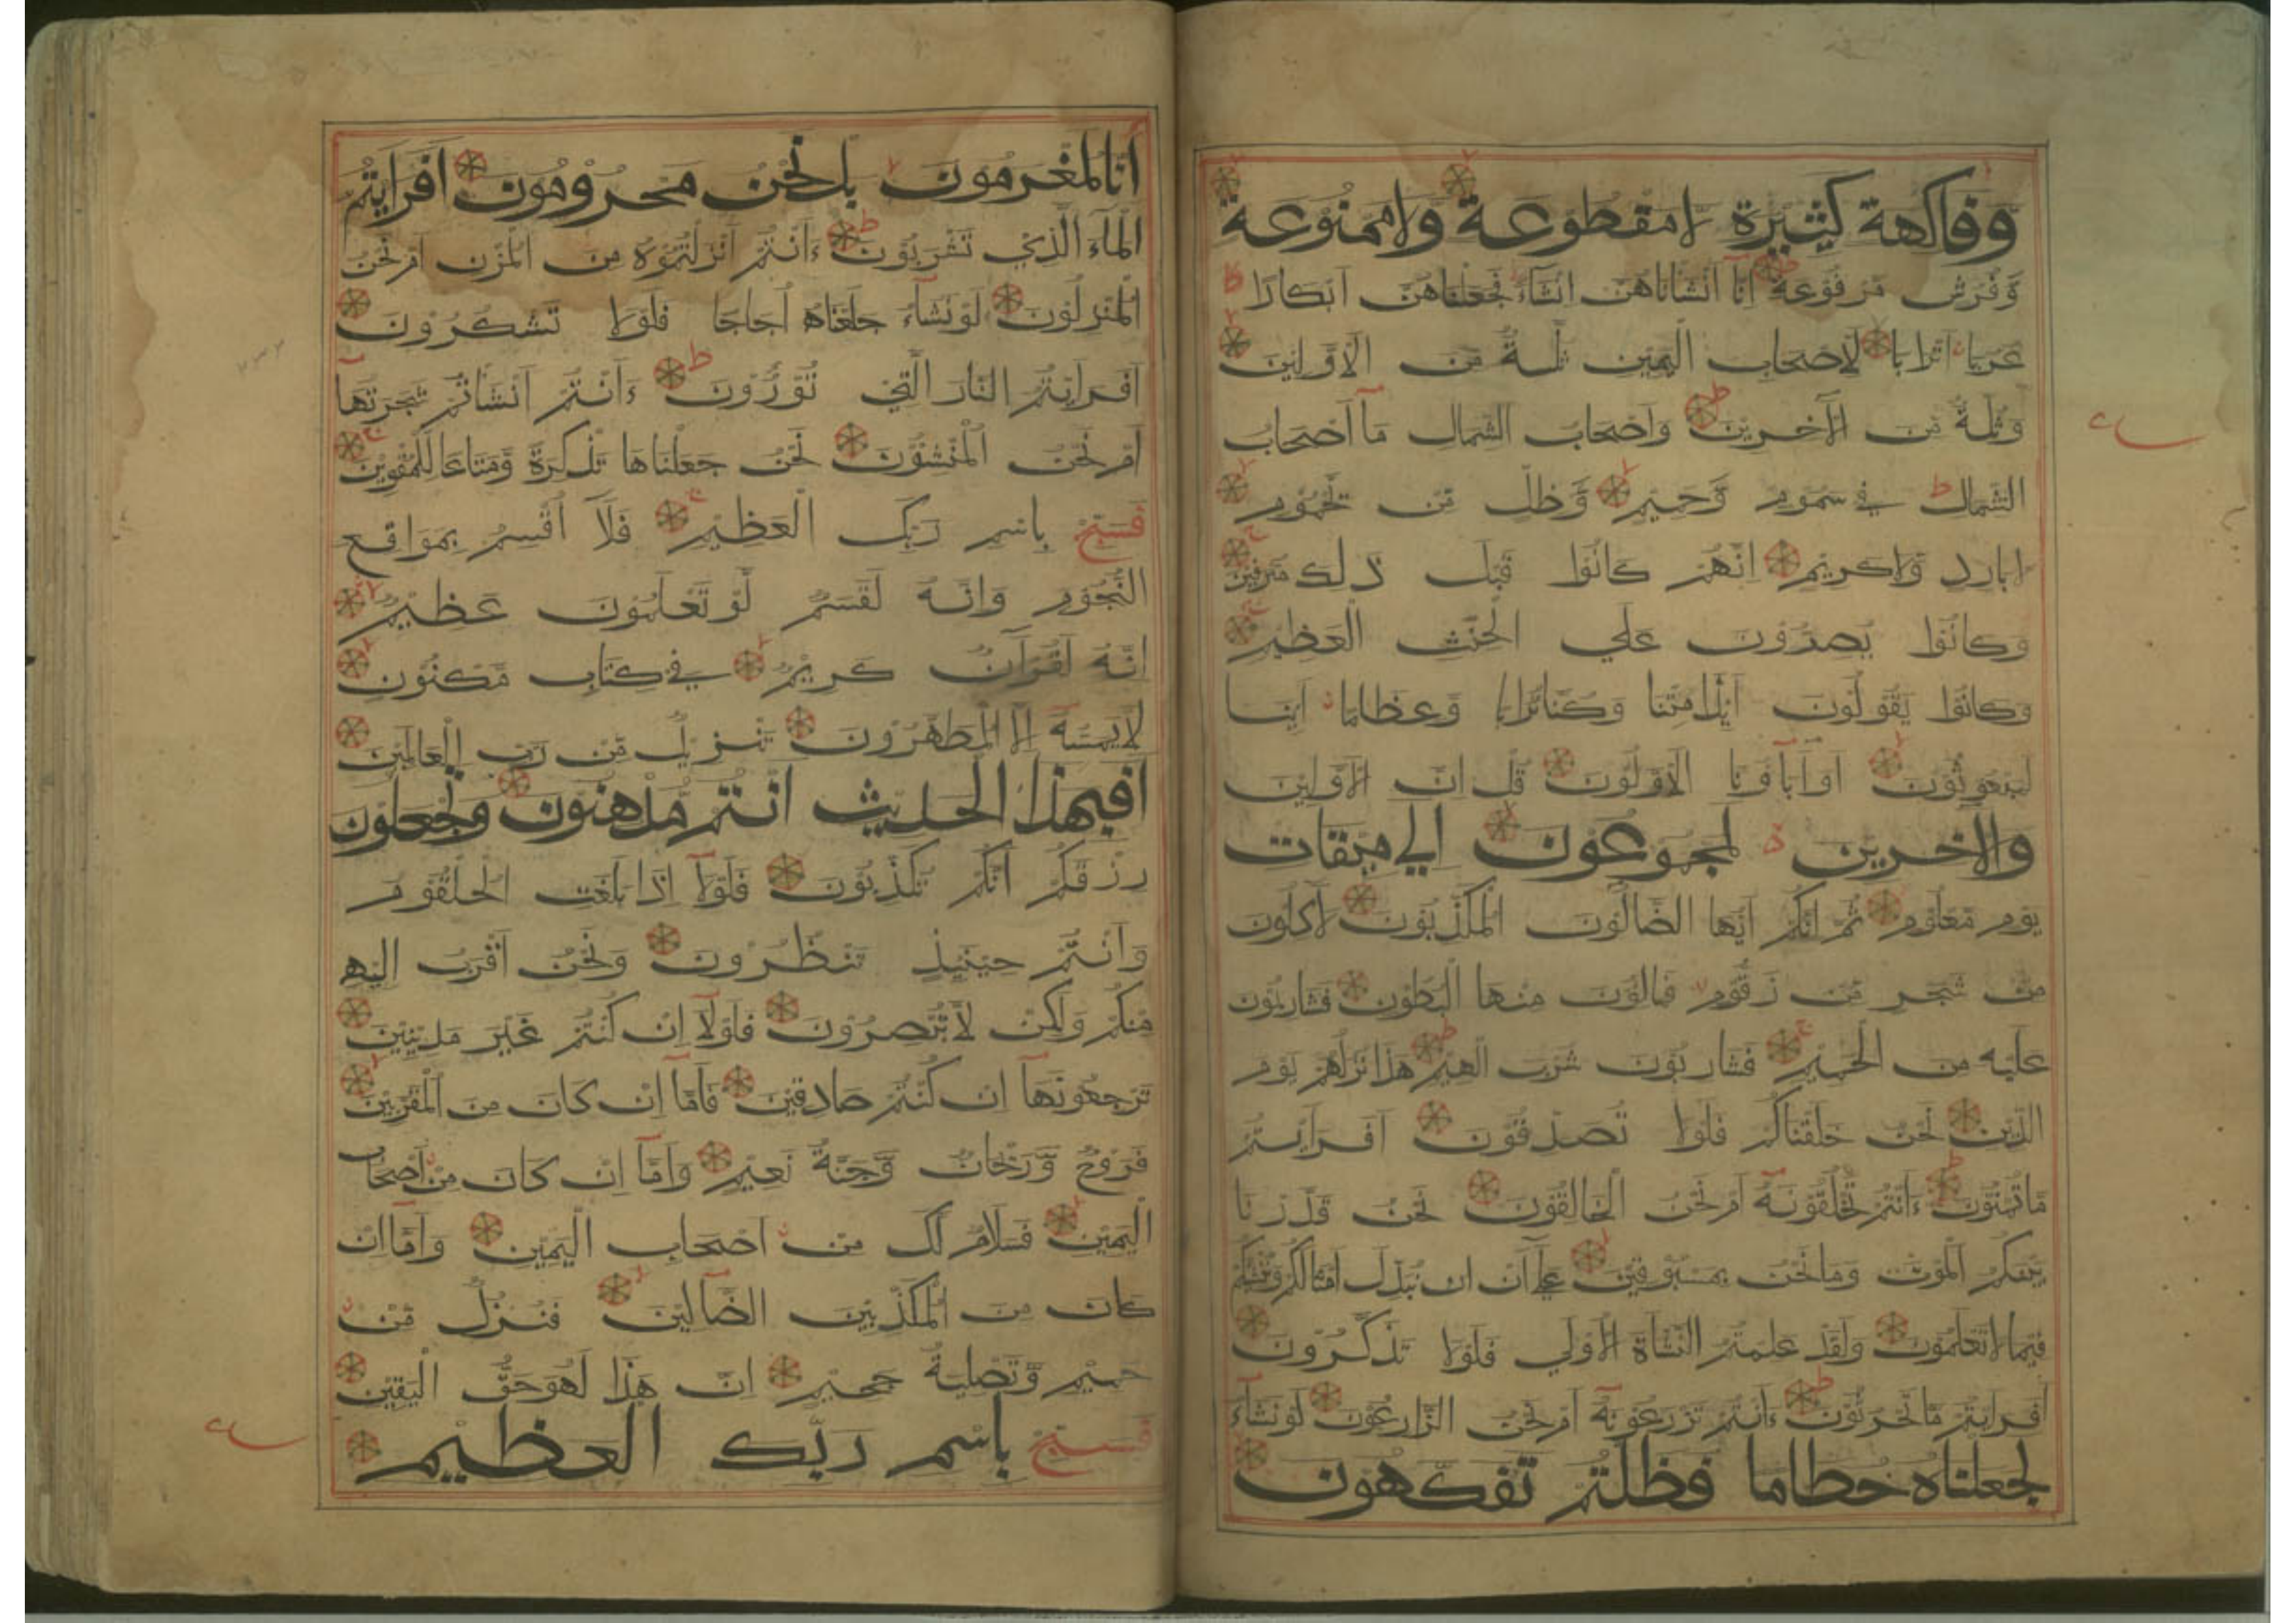 وَفَاكِهَةٍ كَثِيرَةٍ لَا مَقْطُوعَةٍ وَلَا مَمْنُوعَةٍ
وَفُرُشٍ مَرْفُوعَةٍ اِنَّا اَنْشَانَاهُنَّ اِنْشَاءً فَجَعَلْنَاهُنَّ اَبْكَارًا
عُرُبًا اَتْرَابًا لِاَصْحَابِ الْيَمِيْنِ ثُلَّةٌ مِّنَ الْاَوَّلِيْنَ
وَثُلَّةٌ مِّنَ الْاٰخَرِيْنَ وَاَصْحَابُ الشِّمَالِ مَآ اَصْحَابُ
الشِّمَالِ فِي سَمُوْمٍ وَّحَمِيْمٍ وَّظِلٍّ مِّنْ يَّحْمُوْمٍ
لَا بَارِدٍ وَّلَا كَرِيْمٍ اِنَّهُمْ كَانُوْا قَبْلَ ذٰلِكَ مُتْرَفِيْنَ
وَكَانُوْا يُصِرُّوْنَ عَلَي الْحِنْثِ الْعَظِيْمِ
وَكَانُوْا يَقُوْلُوْنَ اَئِذَا مِتْنَا وَكُنَّا تُرَابًا وَّعِظَامًا اَئِنَّا
لَمَبْعُوْثُوْنَ اَوَآبَآؤُنَا الْاَوَّلُوْنَ قُلْ اِنَّ الْاَوَّلِيْنَ
وَالْاٰخِرِيْنَ لَمَجْمُوْعُوْنَ اِلَي مِيْقَاتِ
يَوْمٍ مَّعْلُوْمٍ ثُمَّ اِنَّكُمْ اَيُّهَا الضَّالُّوْنَ الْمُكَذِّبُوْنَ لَاٰكِلُوْنَ
مِنْ شَجَرٍ مِّنْ زَقُّوْمٍ فَمَالِؤُنَ مِنْهَا الْبُطُوْنَ فَشَارِبُوْنَ
عَلَيْهِ مِنَ الْحَمِيْمِ فَشَارِبُوْنَ شُرْبَ الْهِيْمِ هٰذَا نُزُلُهُمْ يَوْمَ
الدِّيْنِ نَحْنُ خَلَقْنَاكُمْ فَلَوْلَا تُصَدِّقُوْنَ اَفَرَاَيْتُمْ
مَّا تُمْنُوْنَ ءَاَنْتُمْ تَخْلُقُوْنَهُ اَمْ نَحْنُ الْخَالِقُوْنَ نَحْنُ قَدَّرْنَا
بَيْنَكُمُ الْمَوْتَ وَمَا نَحْنُ بِمَسْبُوْقِيْنَ عَلٰٓي اَنْ نُّبَدِّلَ اَمْثَالَكُمْ وَنُنْشِئَكُمْ
فِيْمَا لَا تَعْلَمُوْنَ وَلَقَدْ عَلِمْتُمُ النَّشْاَةَ الْاُوْلَي فَلَوْلَا تَذَكَّرُوْنَ
اَفَرَاَيْتُمْ مَّا تَحْرُثُوْنَ ءَاَنْتُمْ تَزْرَعُوْنَهُ اَمْ نَحْنُ الزَّارِعُوْنَ لَوْ نَشَآءُ
لَجَعَلْنَاهُ حُطَامًا فَظَلْتُمْ تَفَكَّهُوْنَ
اِنَّا لَمُغْرَمُوْنَ بَلْ نَحْنُ مَحْرُوْمُوْنَ اَفَرَاَيْتُمُ
الْمَآءَ الَّذِيْ تَشْرَبُوْنَ ءَاَنْتُمْ اَنْزَلْتُمُوْهُ مِنَ الْمُزْنِ اَمْ نَحْنُ
الْمُنْزِلُوْنَ لَوْ نَشَآءُ جَعَلْنَاهُ اُجَاجًا فَلَوْلَا تَشْكُرُوْنَ
اَفَرَاَيْتُمُ النَّارَ الَّتِيْ تُوْرُوْنَ ءَاَنْتُمْ اَنْشَاْتُمْ شَجَرَتَهَا
اَمْ نَحْنُ الْمُنْشِئُوْنَ نَحْنُ جَعَلْنَاهَا تَذْكِرَةً وَّمَتَاعًا لِّلْمُقْوِيْنَ
فَسَبِّحْ بِاسْمِ رَبِّكَ الْعَظِيْمِ فَلَآ اُقْسِمُ بِمَوَاقِعِ
النُّجُوْمِ وَاِنَّهُ لَقَسَمٌ لَّوْ تَعْلَمُوْنَ عَظِيْمٌ
اِنَّهُ لَقُرْآنٌ كَرِيْمٌ فِي كِتَابٍ مَّكْنُوْنٍ
لَا يَمَسُّهُ اِلَّا الْمُطَهَّرُوْنَ تَنْزِيْلٌ مِّنْ رَّبِّ الْعَالَمِيْنَ
اَفَبِهٰذَا الْحَدِيْثِ اَنْتُمْ مُّدْهِنُوْنَ وَتَجْعَلُوْنَ
رِزْقَكُمْ اَنَّكُمْ تُكَذِّبُوْنَ فَلَوْلَآ اِذَا بَلَغَتِ الْحُلْقُوْمَ
وَاَنْتُمْ حِيْنَئِذٍ تَنْظُرُوْنَ وَنَحْنُ اَقْرَبُ اِلَيْهِ
مِنْكُمْ وَلٰكِنْ لَّا تُبْصِرُوْنَ فَلَوْلَآ اِنْ كُنْتُمْ غَيْرَ مَدِيْنِيْنَ
تَرْجِعُوْنَهَآ اِنْ كُنْتُمْ صَادِقِيْنَ فَاَمَّآ اِنْ كَانَ مِنَ الْمُقَرَّبِيْنَ
فَرَوْحٌ وَّرَيْحَانٌ وَّجَنَّةُ نَعِيْمٍ وَاَمَّآ اِنْ كَانَ مِنْ اَصْحَابِ
الْيَمِيْنِ فَسَلَامٌ لَّكَ مِنْ اَصْحَابِ الْيَمِيْنِ وَاَمَّآ اِنْ
كَانَ مِنَ الْمُكَذِّبِيْنَ الضَّآلِّيْنَ فَنُزُلٌ مِّنْ
حَمِيْمٍ وَّتَصْلِيَةُ جَحِيْمٍ اِنَّ هٰذَا لَهُوَ حَقُّ الْيَقِيْنِ
فَسَبِّحْ بِاسْمِ رَبِّكَ الْعَظِيْمِ